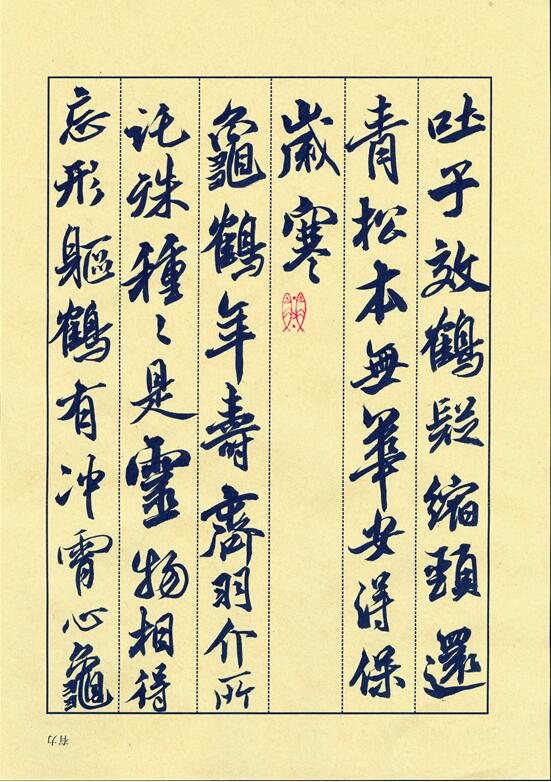 吐子效鶴疑縮頸還
青松本無華安得保
歲寒
龜鶴年壽齊羽介所
託殊種々是靈物相得
忘形軀鶴有冲霄心龜
有力